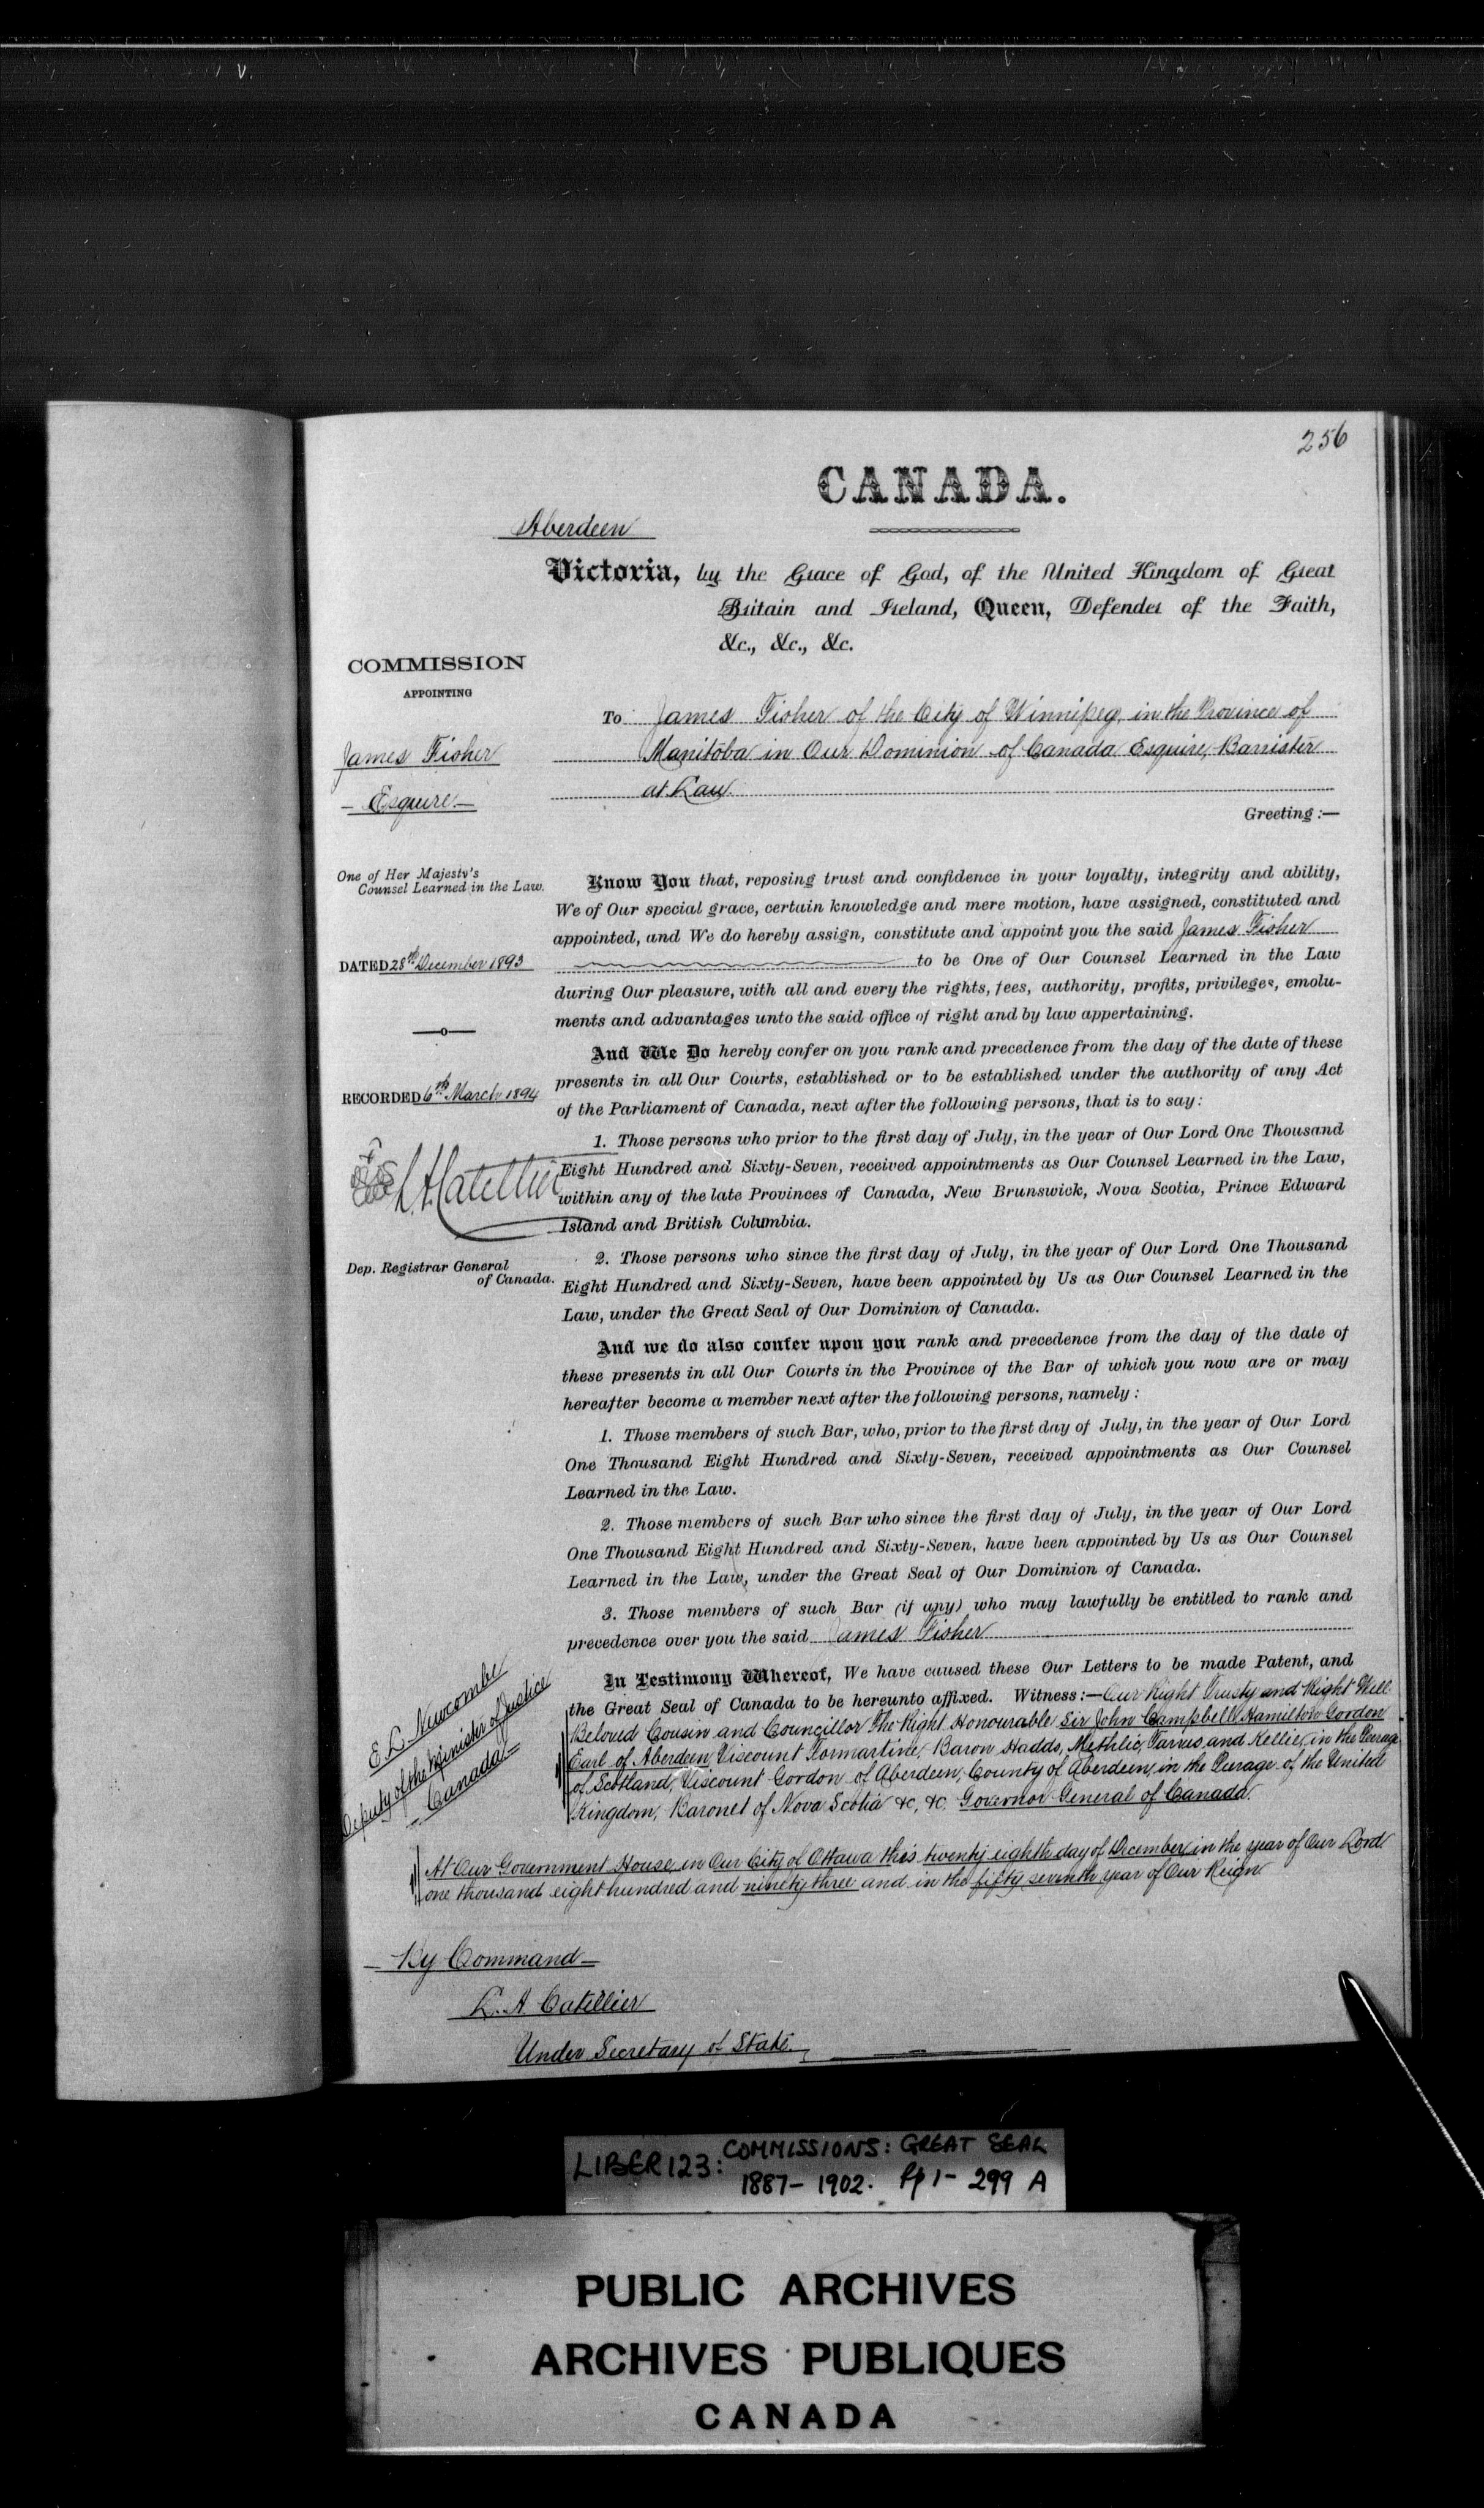 256
CANADA.
Aberdeen
Victoria, by the Grace of God, of the United Kingdom of Great
Britain and Ireland, Queen, Defender of the Faith,
&c., &c., &c.
COMMISSION
APPOINTING
James Fisher
— Esquire —
To James Fisher of the City of Winnipeg in the Province of
Manitoba in Our Dominion of Canada Esquire, Barrister
at Law.
Greeting :—
One of Her Majesty's
Counsel Learned in the Law.
DATED 28th December 1893
—o—
RECORDED 6th March 1894
L. A. Catellier
Dep. Registrar General
of Canada.
Know You that, reposing trust and confidence in your loyalty, integrity and ability,
We of Our special grace, certain knowledge and mere motion, have assigned, constituted and
appointed, and We do hereby assign, constitute and appoint you the said James Fisher
to be One of Our Counsel Learned in the Law
during Our pleasure, with all and every the rights, fees, authority, profits, privileges, emolu-
ments and advantages unto the said office of right and by law appertaining.
And We Do hereby confer on you rank and precedence from the day of the date of these
presents in all Our Courts, established or to be established under the authority of any Act
of the Parliament of Canada, next after the following persons, that is to say:
1. Those persons who prior to the first day of July, in the year of Our Lord One Thousand
Eight Hundred and Sixty-Seven, received appointments as Our Counsel Learned in the Law,
within any of the late Provinces of Canada, New Brunswick, Nova Scotia, Prince Edward
Island and British Columbia.
2. Those persons who since the first day of July, in the year of Our Lord One Thousand
Eight Hundred and Sixty-Seven, have been appointed by Us as Our Counsel Learned in the
Law, under the Great Seal of Our Dominion of Canada.
And we do also confer upon you rank and precedence from the day of the date of
these presents in all Our Courts in the Province of the Bar of which you now are or may
hereafter become a member next after the following persons, namely :
1. Those members of such Bar, who, prior to the first day of July, in the year of Our Lord
One Thousand Eight Hundred and Sixty-Seven, received appointments as Our Counsel
Learned in the Law.
2. Those members of such Bar who since the first day of July, in the year of Our Lord
One Thousand Eight Hundred and Sixty-Seven, have been appointed by Us as Our Counsel
Learned in the Law, under the Great Seal of Our Dominion of Canada.
3. Those members of such Bar (if any) who may lawfully be entitled to rank and
precedence over you the said James Fisher
E. L. Newcombe
Deputy of the Minister of Justice
— Canada —
In Testimony Whereof, We have caused these Our Letters to be made Patent, and
the Great Seal of Canada to be hereunto affixed. Witness:—Our Right Trusty and Right Well
Beloved Cousin and Councillor The Right Honourable Sir John Campbell Hamilton Gordon
Earl of Aberdeen, Viscount Formartine, Baron Haddo, Methlic, Tarves and Kellie, in the Peerage
of Scotland, Viscount Gordon of Aberdeen, County of Aberdeen, in the Peerage of the United
Kingdom, Baronet of Nova Scotia &c, &c. Governor General of Canada.
At Our Government House, in Our City of Ottawa this twenty eighth day of December in the year of Our Lord
one thousand eight hundred and ninety three and in the fifty seventh year of Our Reign
— By Command —
L. A. Catellier
Under Secretary of State.
LIBER 123: COMMISSIONS: GREAT SEAL
1887- 1902. Pp 1- 299 A
PUBLIC ARCHIVES
ARCHIVES PUBLIQUES
CANADA